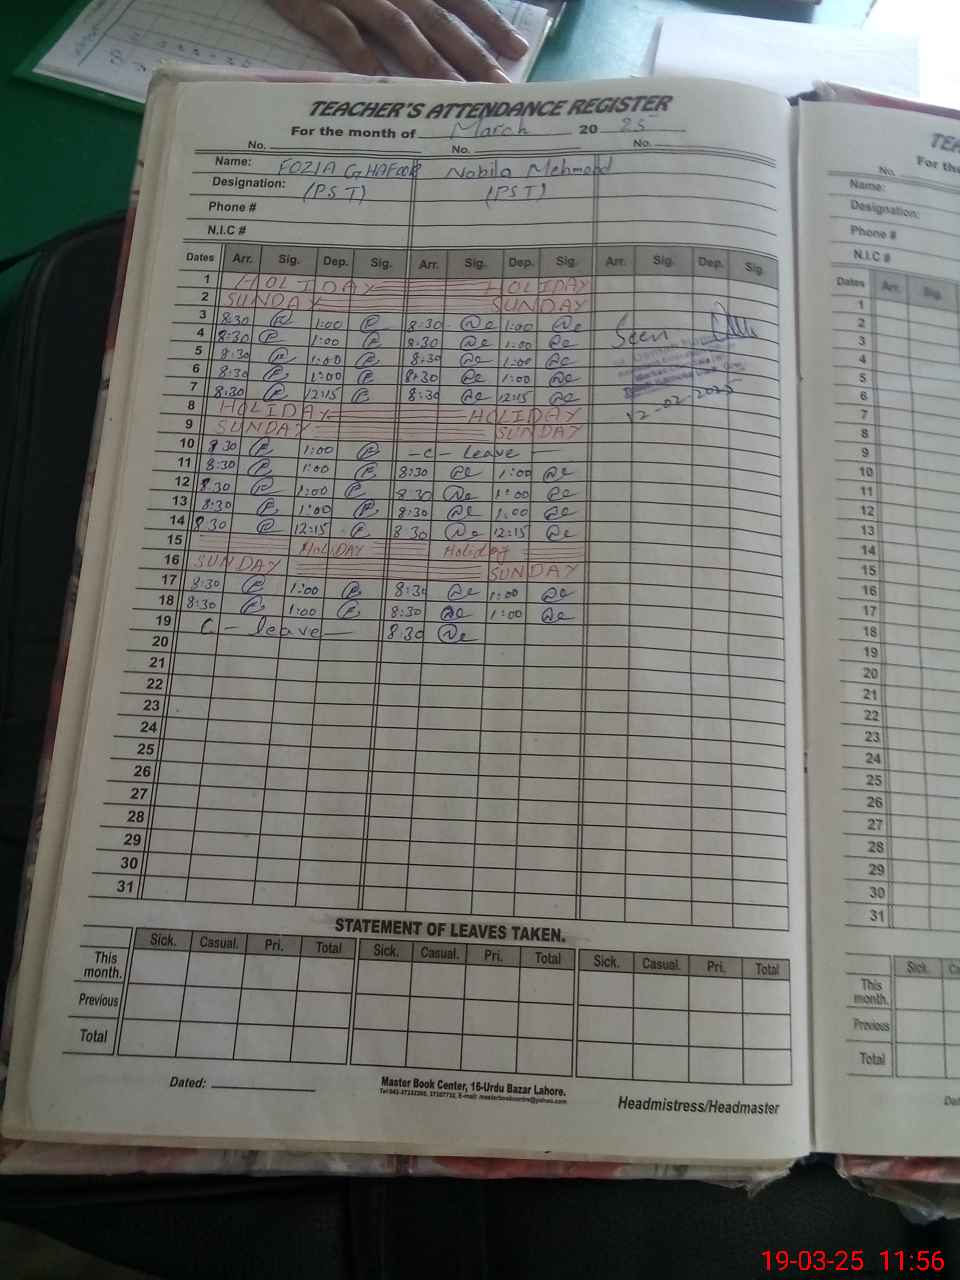 TEACHER'S ATTENDANCE REGISTER
For the month of March 20 25
No. No. No.
Name: FOZIA GHAFOOR Nabila Mehmood
Designation: (PST) (PST)
Phone #
N.I.C #
Dates Arr. Sig. Dep. Sig. Arr. Sig. Dep. Sig. Arr. Sig. Dep. Sig.
1 HOLIDAY HOLIDAY
2 SUNDAY SUNDAY
3 8:30 1:00 8:30 1:00
4 8:30 1:00 8:30 1:00 Seen
5 8:30 1:00 8:30 1:00
6 8:30 1:00 8:30 1:00
7 8:30 12:15 8:30 12:15 12-02-2025
8 HOLIDAY HOLIDAY
9 SUNDAY SUNDAY
10 8:30 1:00 -C- leave
11 8:30 1:00 8:30 1:00
12 8:30 1:00 8:30 1:00
13 8:30 1:00 8:30 1:00
14 8:30 12:15 8:30 12:15
15 HOLIDAY Holiday
16 SUNDAY SUNDAY
17 8:30 1:00 8:30 1:00
18 8:30 1:00 8:30 1:00
19 C - leave 8:30
20
21
22
23
24
25
26
27
28
29
30
31
STATEMENT OF LEAVES TAKEN.
Sick. Casual. Pri. Total Sick. Casual. Pri. Total Sick. Casual. Pri. Total
This month.
Previous
Total
Dated:
Master Book Center, 16-Urdu Bazar Lahore.
Headmistress/Headmaster
For the
No.
Name:
Designation:
Phone #
N.I.C #
Dates Arr. Sig.
1
2
3
4
5
6
7
8
9
10
11
12
13
14
15
16
17
18
19
20
21
22
23
24
25
26
27
28
29
30
31
Sick.
This month.
Previous
Total
19-03-25 11:56